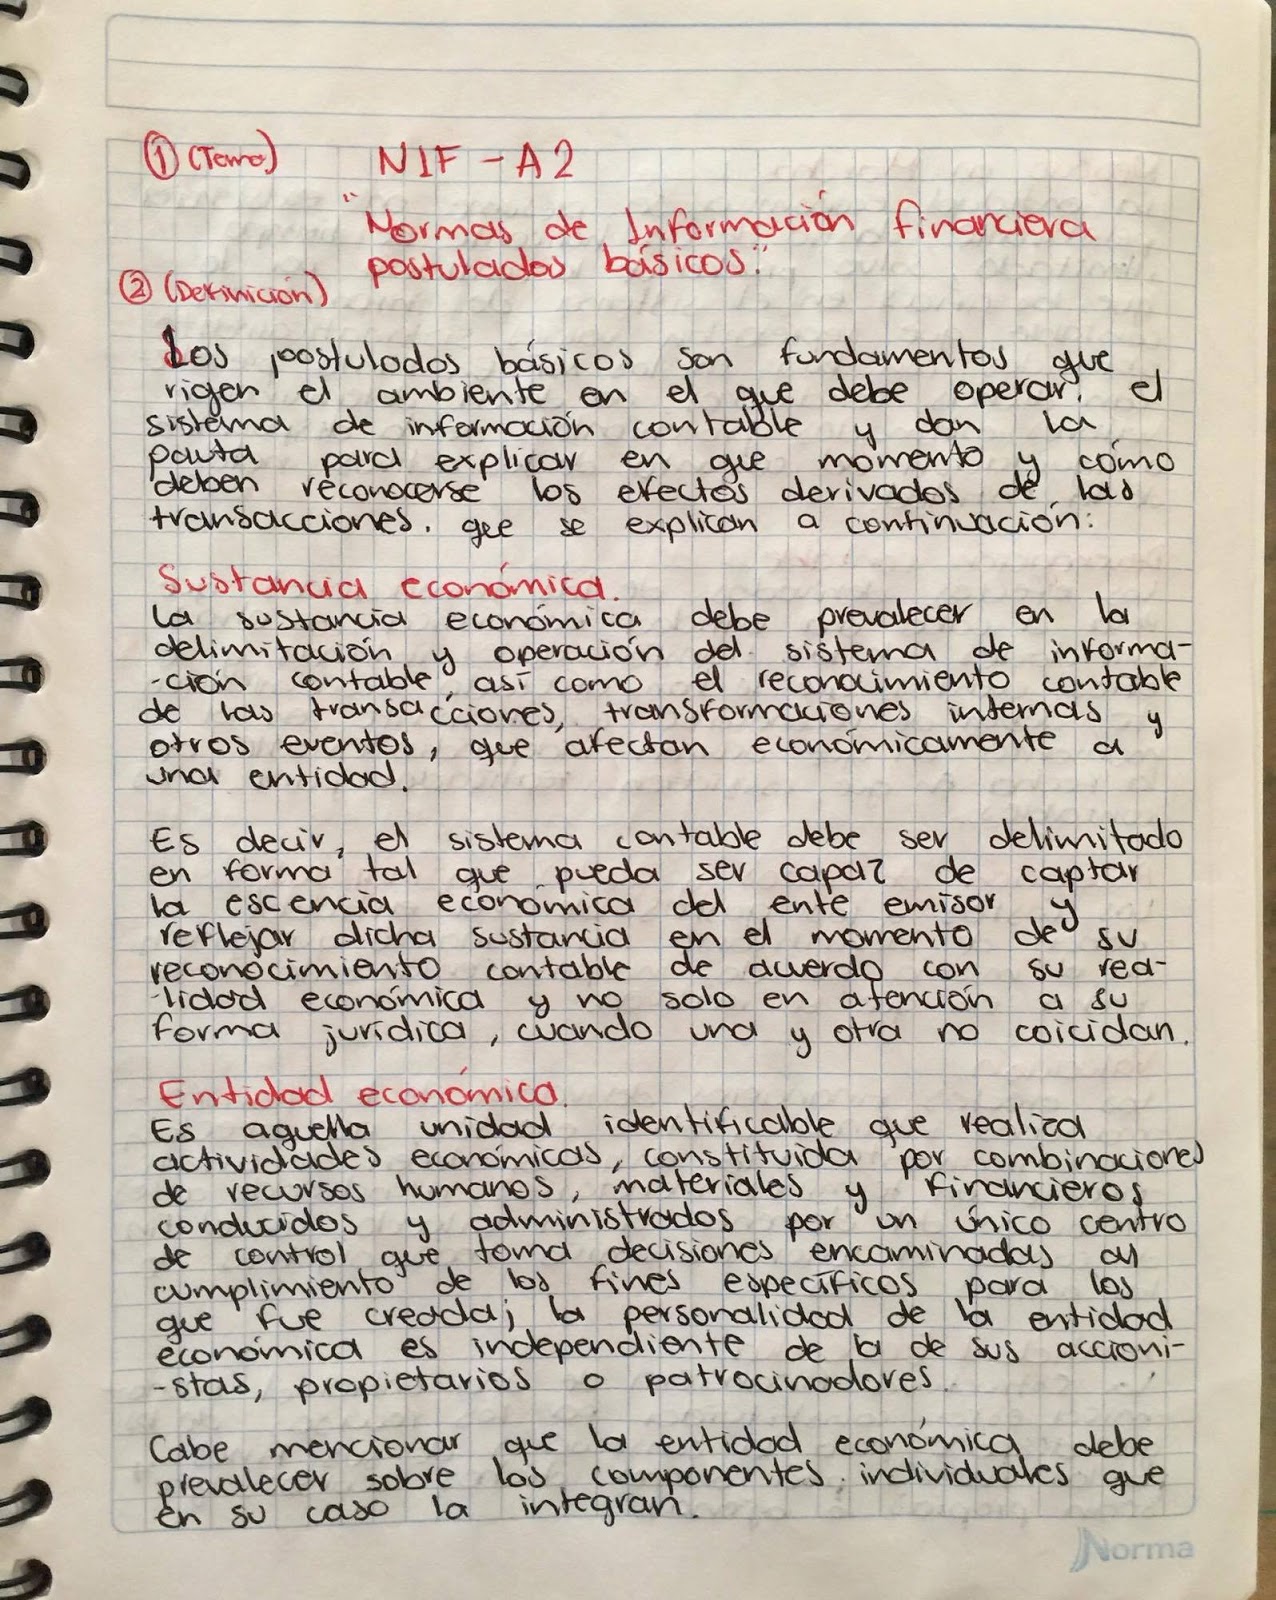 ① (Tema) NIF - A2
"Normas de Información financiera
postulados básicos."
② (Definición)
Los postulados básicos son fundamentos que
rigen el ambiente en el que debe operar el
sistema de información contable y dan la
pauta para explicar en que momento y cómo
deben reconocerse los efectos derivados de las
transacciones. que se explican a continuación:
Sustancia económica.
La sustancia económica debe prevalecer en la
delimitación y operación del sistema de informa-
-ción contable, así como el reconocimiento contable
de las transacciones, transformaciones internas y
otros eventos, que afectan económicamente a
una entidad.
Es decir, el sistema contable debe ser delimitado
en forma tal que pueda ser capaz de captar
la escencia económica del ente emisor y
reflejar dicha sustancia en el momento de su
reconocimiento contable de acuerdo con su rea-
-lidad económica y no solo en atención a su
forma jurídica, cuando una y otra no coicidan.
Entidad económica.
Es aquella unidad identificable que realiza
actividades económicas, constituida por combinaciones
de recursos humanos, materiales y financieros
conducidos y administrados por un único centro
de control que toma decisiones encaminadas al
cumplimiento de los fines específicos para los
que fue creada; la personalidad de la entidad
económica es independiente de la de sus accioni-
-stas, propietarios o patrocinadores.
Cabe mencionar que la entidad económica debe
prevalecer sobre los componentes individuales que
en su caso la integran.
Norma